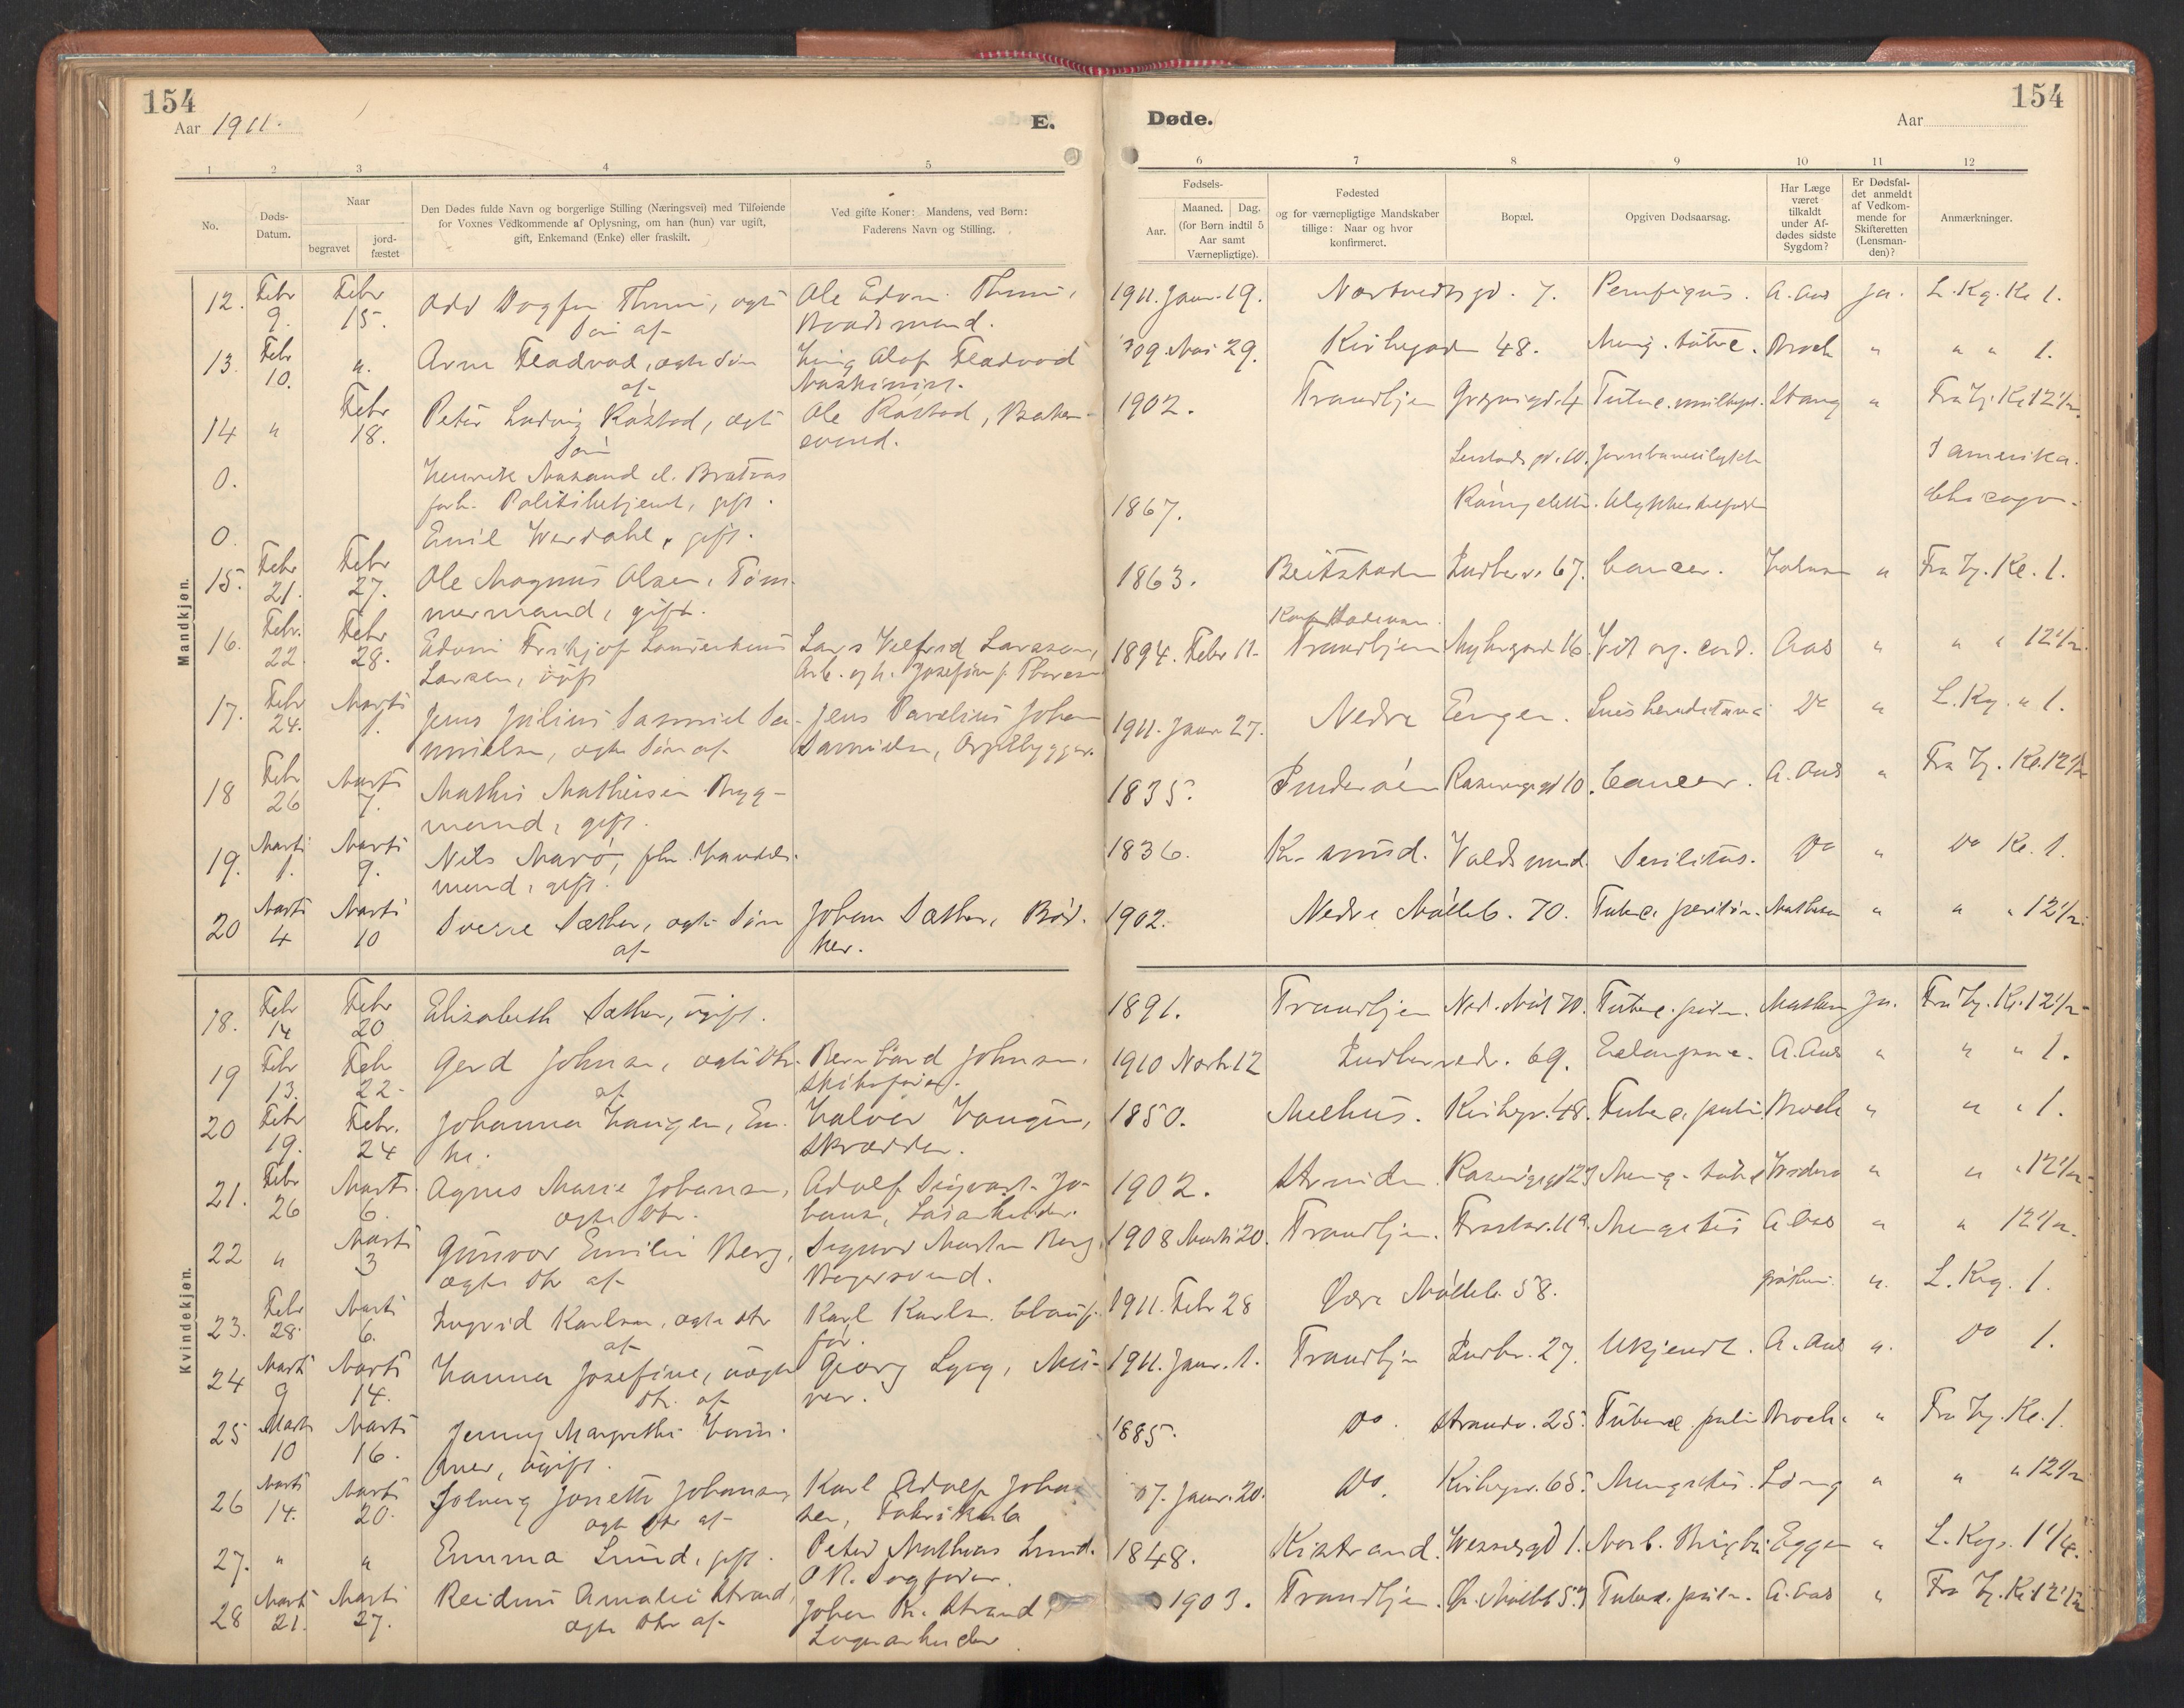 154
Aar 1911.
E.
Døde.
Aar
154
1 2 3 4 5
6 7 8 9 10 11 12
No.
Døds-
Datum.
Naar
begravet
jord-
fæstet
Den Dødes fulde Navn og borgerlige Stilling (Næringsvei) med Tilføiende
for Voxnes Vedkommende af Oplysning, om han (hun) var ugift,
gift, Enkemand (Enke) eller fraskilt.
Ved gifte Koner: Mandens, ved Børn:
Faderens Navn og Stilling.
Fødsels-
Aar.
Maaned. Dag.
(for Børn indtil 5
Aar samt
Værnepligtige).
Fødested
og for værnepligtige Mandskaber
tillige: Naar og hvor
konfirmeret.
Bopæl.
Opgiven Dødsaarsag.
Har Læge
været
tilkaldt
under Af-
dødes sidste
Sygdom?
Er Dødsfal-
det anmeldt
af Vedkom-
mende for
Skifteretten
(Lensman-
den)?
Anmærkninger.
Mandkjøn.
12. Febr 9. Febr 15. Odd Dagfin Thuni, ægte Søn af Ole Edvin Thuni, Baadsmand. 1911. Janr. 19. 7. Pemfigus. A. Aas ja. L. Kg. Kl 1.
13. Febr 10. " Arne Fladvad, ægte Søn af Olaf Fladvad Maskinist. 09 Mai 29. Kirkegaden 48. Mening. tuberc. Broch " " " 1.
14 " Febr 18. Peter Ludvig Røstad, ægte Søn Ole Røstad, Bager-svend. 1902. Trondhjem 4 Tuberc. Stang " Fra Kl 12½.
0. Henrik Masand el. Bratvas forh. Politibetjent, gift. 10. Jernbaneulykke I Amerika.
0. Emil Werdahl, gift. 1867. Chicago.
15. Febr 21. Febr 27. Ole Magnus Olsen, Tøm-mermand, gift. 1863. Beitstaden Indherr. 67. Cancer. " Fra Kl. 1.
16. Febr. 22. Febr 28. Edvin Fritjof Larsen, ugift Lars Larssen, Arb. og h. Josefine f. 1894. Febr 11. Trondhjem 16 Vit. org. cord. Aas " " " 12½.
17. Febr 24. Marts 1. Jens Julius Samuel Sa-muelsen, ægte Søn af Jens Johan Samuelsen, Orgelbygger. 1911. Janr 27. Nedre Enger. Lues hereditaria Do " L. Kg. " 1.
18 Febr 26 Marts 7. Mathis Mathisen Bryg-mand, gift. 1835. Inderøen 10. Cancer. A. Aas " Fra Kl. 12½
19. Marts 1. Marts 9. Nils Marø, fhv. Handels-mand, gift. 1836. Kr. sund. Senilitas. Do " Do Kl. 1.
20 Marts 4 Marts 10 Sverre Sæther, ægte Søn af Johan Sæther, Bød-ker. 1902. Nedre Mølleb. 70. Tuberc. periton. " " " 12½.
Kvindekjøn.
18. Febr 14 Febr 20 Elisabeth Sæther, ugift. 1891. Trondhjem Ned. Møl 70. Tuberc. pulm. Ja. Fra Kl. 12½
19 Febr 13. Febr 22. Gerd Johnsen, ægte Dtr. af Bernhard Johnsen, 1910 Marts 12 Indherredv. 69. Eclampsia. A. Aas " " " 1.
20 Febr 19. Febr. 24 Johanna Haugen, En-ke. Halvor Haugen, Skrædder. 1850. Melhus. Kirkegd. 48. Tuberc. pulm. Broch " " " 1.
21. Febr 26 Marts 6. Agnes Marie Johansen, ægte Dtr. Adolf Sigvart Jo-hansen, 1902. Strinden Mening. tuberc " " " 12½
22 " Marts 3 Gunvor Emilie Berg, ægte Dtr af Sigurd Martin Berg, Bagersvend. 1908 Marts 20. Trondhjem. 11a Mengitis A Aas " " 12½.
23. Febr 28. Marts 6. Ingrid Karlsen, ægte Dtr af Karl Karlsen, Chauf-før. 1911. Febr 28 Øvre Mølleb. 58. " L. Kg. 1.
24 Marts 9 Marts 14. Hanna Josefine, uægte Dtr. af Georg Lyng, Mu-rer. 1911. Janr. 1. Trondhjem Indhr. 27. Ukjendt. A. Aas " Do 1.
25 Marts 10 Marts 16. Jenny Margrethe Ham-mer, ugift. 1885. Do. Strandv. 25. Tuberc. pulm Broch " Fra Kl. 1.
26 Marts 14. Marts 20. Solveig Jonette Johansen, ægte Dtr af Karl Adolf Johan-sen, Fabrikarb 07. Janr. 20. Do. Kirkegd. 65. Mengitis. " " " 12½
27. " " Emma Lund, gift. Peter Mathias Lund. O.R. Sagfører. 1848. Kistrand. Wesselsgd 1. Morb. Brightii Eggen " L. Kg. 1¼.
28 Marts 21. Marts 27. Reidun Amalie Strand, ægte Dtr af Johan Strand, Lagerarbeider. 1903. Trondhjem. Ø. Mølleb 53 Tuberc. pulm. A. Aas " Fra Kl. 12½